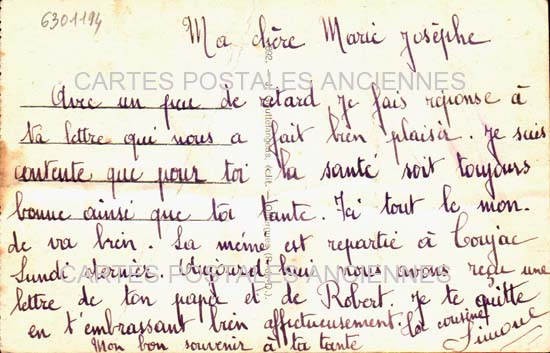 6301194
Ma chère Marie Josèphe
CARTES POSTALES ANCIENNES
Avec un peu de retard je fais réponse à
ta lettre qui nous a fait bien plaisir. Je suis
contente que pour toi la santé soit toujours
bonne ainsi que toi tante. Ici tout le mon-
de va bien. La mémé est repartie à Coujac
Lundi dernier. Aujourd'hui nous avons reçu une
CARTES POSTALES ANCIENNES
lettre de ton papa et de Robert. Je te quitte
en t'embrassant bien affectueusement. Ta cousine
Simone
Mon bon souvenir à ta tante